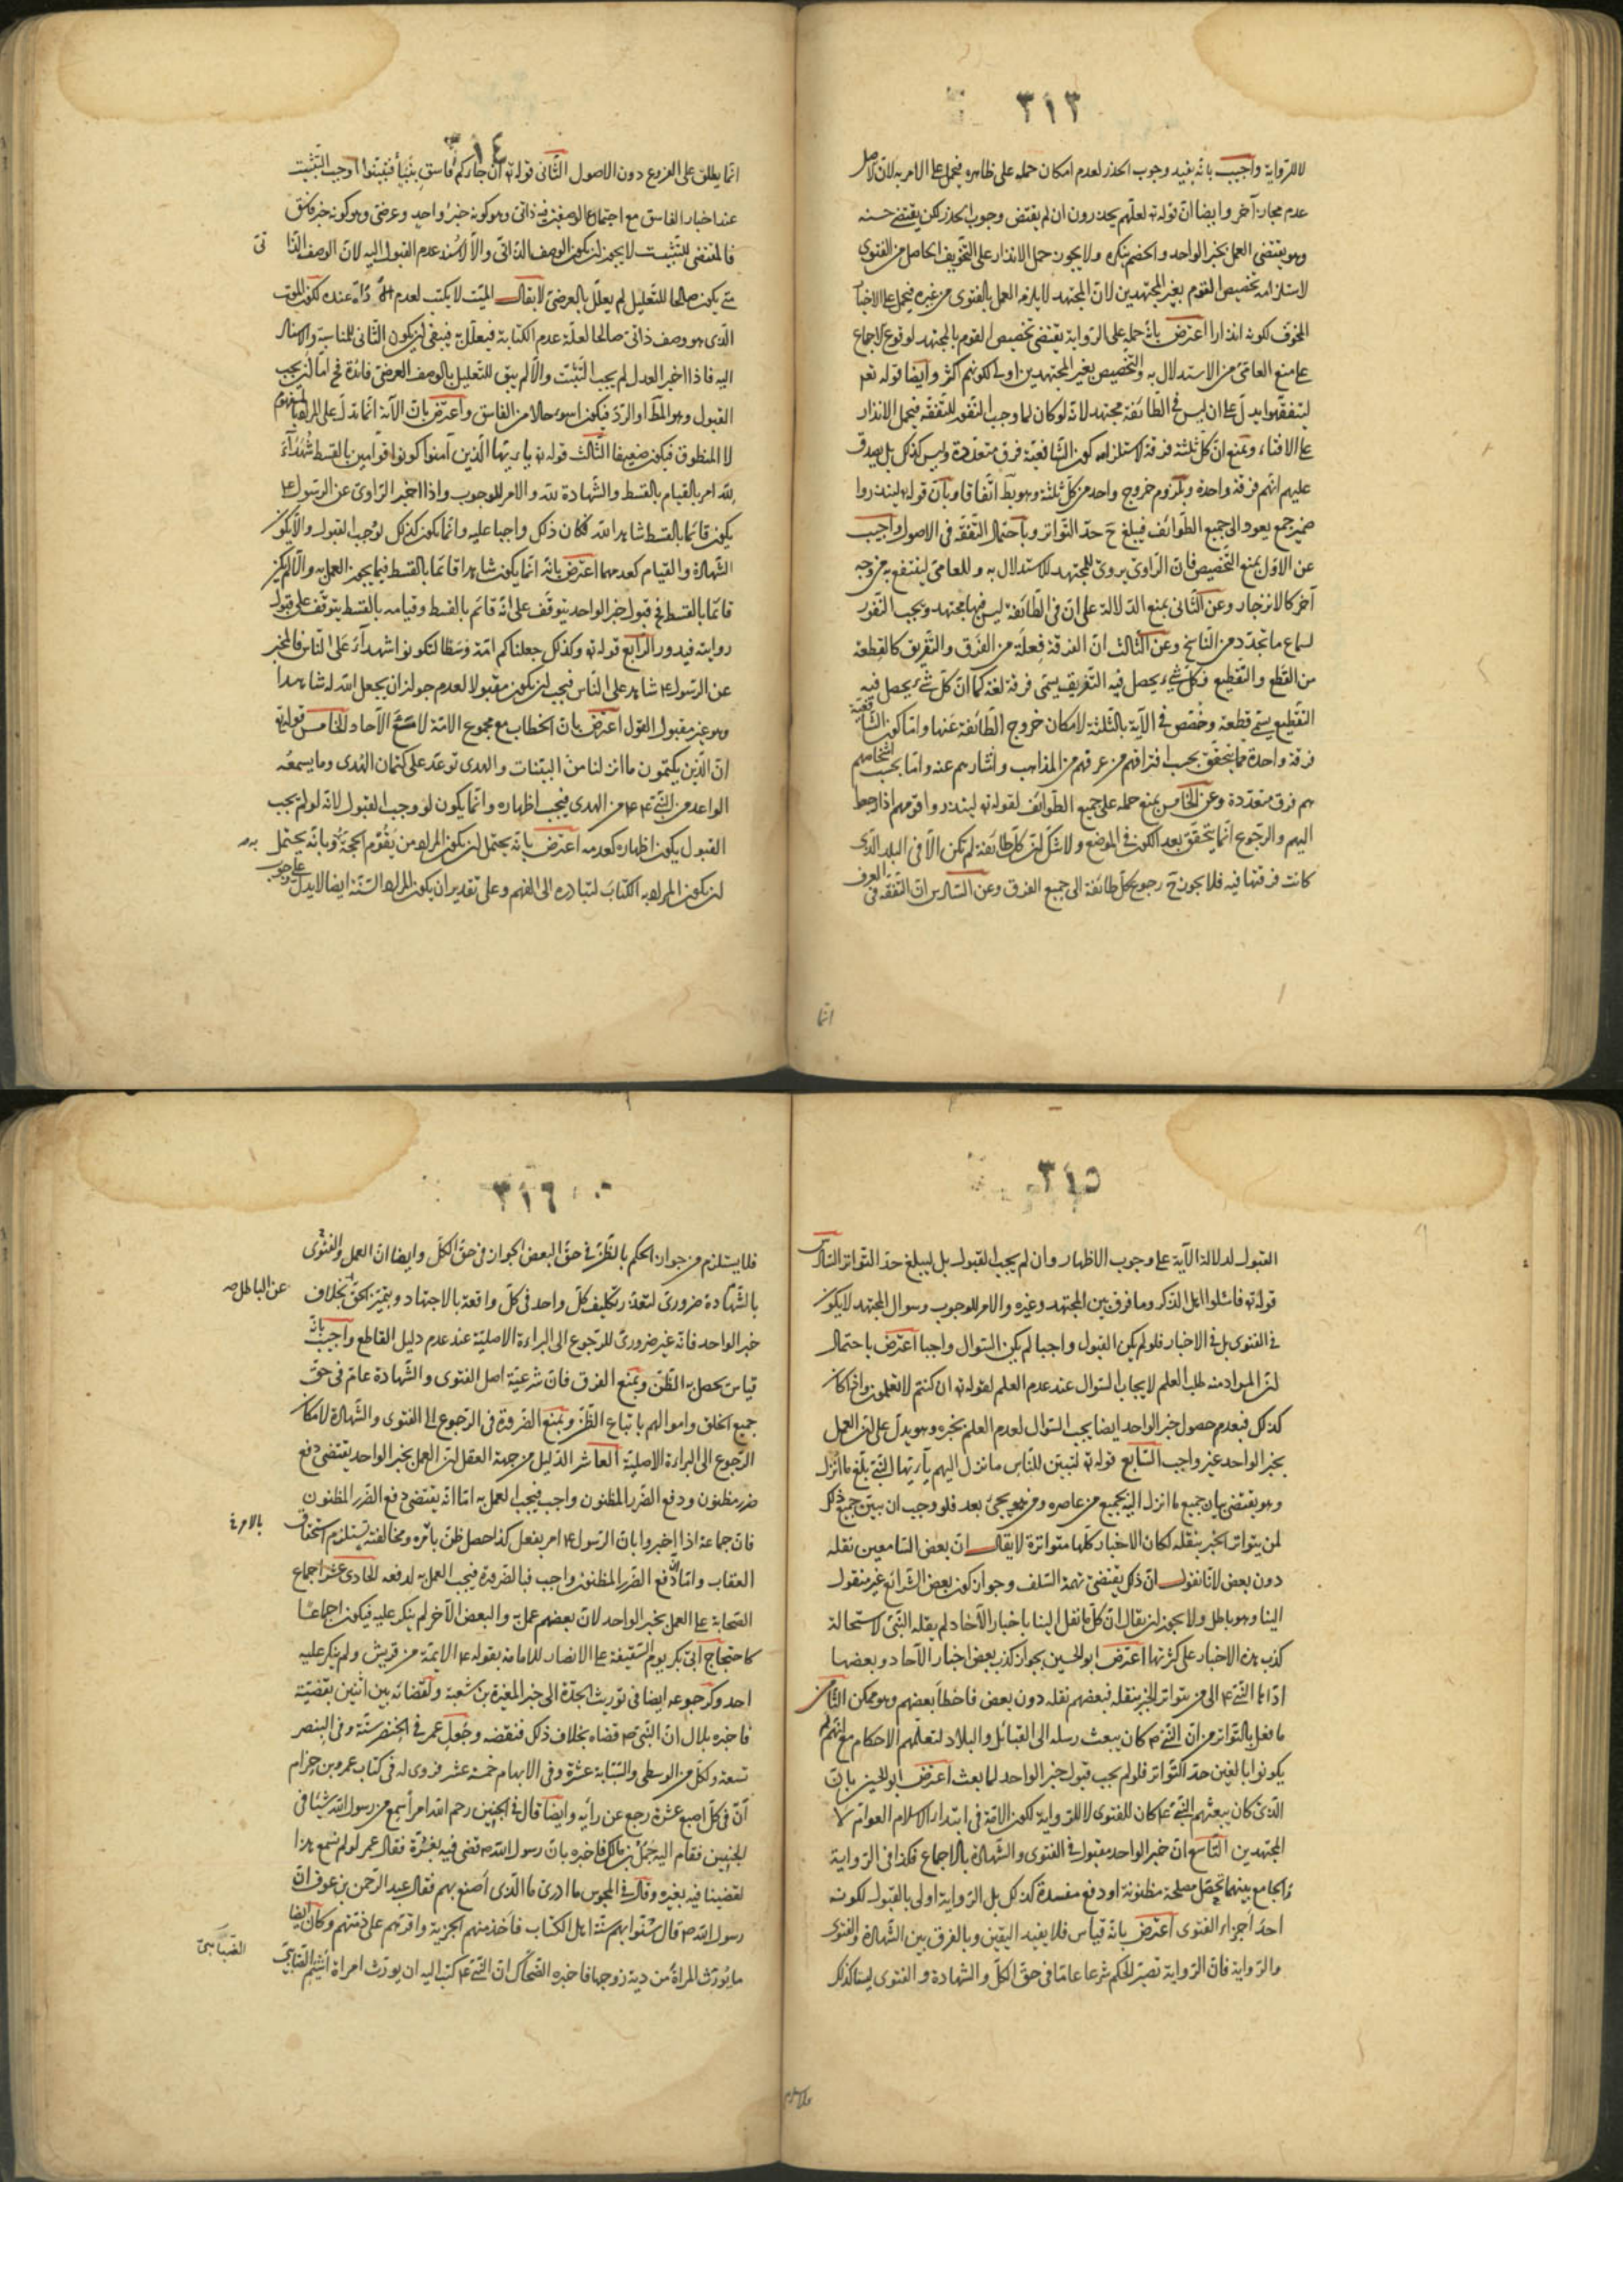 ٣١٣
لا للرواية واجيب بانه يفيد وجوب الحذر لعدم امكان حمله على ظاهره فيحمل على الامر به لان الاصل
عدم مجاز آخر وايضا ان قوله تع لعلهم يحذرون ان لم يقتض وجوب الحذر لكن يقتضى حسنه
وهو يقتضى العمل بخبر الواحد والخصم ينكره ولا يجوز حمل الانذار على التخويف الحاصل من الفتوى
لاستلزامه تخصيص القوم بغير المجتهدين لان المجتهد لا يلزمه العمل بالفتوى من غيره فيحمل على الاخبار
المخوف لكونه انذارا اعترض بان حمله على الرواية يقتضى تخصيص القوم بالمجتهد لوقوع الاجماع
على منع العامى من الاستدلال به والتخصيص بغير المجتهدين اولى لكونهم اكثر وايضا قوله تع
ليتفقهوا يدل على ان ليس فى الطائفة مجتهد لانه لو كان لما وجب التفور للتفقه فيحمل الانذار
على الافتاء ويمنع ان كل ثلثة فرقة لاستلزامه كون الشافعية فرق متعددة وليس كذلك بل يصدق
عليهم انهم فرقة واحدة ويلزوم خروج واحد من كل ثلثة وهو بط اتفاقا وبان قوله لينذروا
ضمير جمع يعود الى جميع الطوائف فيبلغ ح حد التواتر وباحتمال التفقه فى الاصول واجيب
عن الاول بمنع التخصيص فان الراوى يروى للمجتهد للاستدلال به وللعامى لينتفع به من وجه
آخر كالانزجار وعن الثانى بمنع الدلالة على ان فى الطائفة ليس فيها مجتهد ويجب النفور
لسماع ما تجدد من الناسخ وعن الثالث ان الفرقة فعلة من الفرق والتفريق كالقطعة
من القطع والتقطيع وكل شئ يحصل فيه التفريق يسمى فرقة لغة كما ان كل شئ يحصل فيه
التقطيع يسمى قطعة وخصص فى الآية بالثلثة لامكان خروج الطائفة عنها واما كون الشافعية
فرقة واحدة فما يتحقق بحسب افتراقهم من عرقهم من المذاهب واشارهم عنه واما بحسب اشخاصهم
هم فرق متعددة وعن الخامس بمنع حمله على جميع الطوائف لقوله تع لينذروا قومهم اذا رجعوا
اليهم والرجوع انما يتحقق بعد الكون فى الموضع ولا شك ان كل طائفة لم تكن الا فى البلد الذى
كانت فرقتها فيه فلا يجوز ح رجوع كل طائفة الى جميع الفرق وعن السادس ان التفقه فى العرف
انما
٣١٤
انما يطلق على الفروع دون الاصول الثانى قوله تع ان جاءكم فاسق بنبأ فتبينوا اوجب التثبت
عند اخبار الفاسق مع اجتماع الوصفين فيه ذاتى وهو كونه خبر واحد وعرضى وهو كونه خبر فاسق
فالمقتضى للتثبت لا يجوز ان يكون الوصف الذاتى والا لاسند عدم القبول اليه لان الوصف الذا
تى
متى يكون صالحا للتعليل لم يعلل بالعرضى لا يقال الميت لا يكتب لعدم عنده لكون الموت
الذى هو وصف ذاتى صالحا لعلة عدم الكتابة فيعلل به فبقى ان يكون الثانى للمناسبة والاسناد
اليه فاذا اخبر العدل لم يجب التثبت والا لم يبق للتعليل بالوصف العرضى فائدة فح اما ان يجب
القبول وهو المط او الرد فيكون اسوء حالا من الفاسق واعترض بان الآية انما تدل على المراد بالمفهوم
لا المنطوق فيكون ضعيفا الثالث قوله تع يا ايها الذين آمنوا كونوا قوامين بالقسط شهداء
لله امر بالقيام بالقسط والشهادة لله والامر للوجوب واذا اخبر الراوى عن الرسول ع
يكون قائما بالقسط شاهد الله فكان ذلك واجبا عليه وانما يكون كذلك لو وجب القبول والا يكون
الشهادة والقيام كعدمهما اعترض بانه انما يكون شاهدا قائما بالقسط فيما يجوز العمل به والا لم يكن
قائما بالقسط فح قبول خبر الواحد يتوقف على انه قائم بالقسط وقيامه بالقسط يتوقف على قبول
روايته فيدور الرابع قوله تع وكذلك جعلناكم امة وسطا لتكونوا شهداء على الناس فالمخبر
عن الرسول ع شاهد على الناس فيجب ان يكون مقبولا لعدم جواز ان يجعل الله له شاهدا
وهو غير مقبول القول اعترض بان الخطاب مع مجموع الامة لا مع الآحاد الخامس قوله تع
ان الذين يكتمون ما انزلنا من البينات والهدى توعد على كتمان الهدى وما يسمعه
الواحد من النبى ع من الهدى فيجب اظهاره وانما يكون لو وجب القبول لانه لو لم يجب
القبول يكون اظهاره كعدمه اعترض بانه يحتمل ان يكون المراد من يقوم الحجة وبانه يحتمل
به
ان يكون المراد به الكتاب لتبادره الى الفهم وعلى تقدير ان يكون المراد السنة ايضا لا يدل على وجوب
٣١٥
القبول لدلالة الآية على وجوب الاظهار وان لم يجب القبول بل ليبلغ حد التواتر السادس
قوله تع فاسئلوا اهل الذكر وما فرق بين المجتهد وغيره والامر للوجوب وسوال المجتهد لا يكون
فى الفتوى بل فى الاخبار فلو لم يكن القبول واجبا لم يكن السوال واجبا اعترض باحتمال
ان المراد منه طلب العلم لايجاب السوال عند عدم العلم لقوله تع ان كنتم لا تعلمون واذا كان
كذلك فبعدم حصول خبر الواحد ايضا يجب السوال لعدم العلم بخبره وهو يدل على ان العمل
بخبر الواحد غير واجب السابع قوله تع لتبين للناس ما نزل اليهم يا ايها النبى بلغ ما انزل
وهو يقتضى بيان جميع ما انزل اليه لجميع من عاصره ومن هو يجئ بعد فلو وجب ان يبين جميع ذلك
لمن يتواتر الخبر بنقله لكان الاخبار كلها متواترة لا يقال ان بعض السامعين نقله
دون بعض لانا نقول ان ذلك يقتضى تهمة السلف وجواز كون بعض الشرائع غير منقول
الينا وهو باطل ولا يجوز ان يقال ان كل ما نقل الينا باخبار الآحاد لم يقله النبى لاستحالة
كذب هذه الاخبار على كثرتها اعترض ابو الحسين بجواز كذب بعض اخبار الآحاد وبعضها
اداها النبى ع الى من يتواتر الخبر بنقله فبعضهم نقله دون بعض فاخطأ بعضهم وهو ممكن الثامن
ما فعل بالتواتر من ان النبى ص كان يبعث رسله الى القبائل والبلاد لتعلمهم الاحكام مع انهم لم
يكونوا بالغين حد التواتر فلو لم يجب قبول خبر الواحد لما بعث اعترض ابو الحسين بان
الذى كان يبعثهم النبى ع كان للفتوى لا للرواية لكون الامة فى ابتداء الاسلام العوام لا
المجتهدين التاسع ان خبر الواحد مقبول فى الفتوى والشهادة بالاجماع فكذا فى الرواية
والجامع بينهما تحصل مصلحة مظنونة او دفع مفسدة كذلك بل الرواية اولى بالقبول لكونه
احد اجزاء الفتوى اعترض بانه قياس فلا يفيد اليقين وبالفرق بين الشهادة والفتوى
والرواية فان الرواية تصير للحكم شرعا عاما فى حق الكل والشهادة والفتوى ليستا كذلك
٣١٦
فلا يستلزم من جواز الحكم بالظن فى حق البعض الجواز فى حق الكل وايضا ان العمل والفتوى
بالشهادة ضرورى لتعذر تكليف كل واحد فى كل واقعة بالاجتهاد وبتميز الحق بخلاف
عن الباطل صه
خبر الواحد فانه غير ضرورى للرجوع الى البراءة الاصلية عند عدم دليل القاطع واجيب بانه
قياس يحصل به الظن ويمنع الفرق فان شرعية اصل الفتوى والشهادة عام فى حق
جميع الخلق واموالهم باتباع الظن ويمنع الضرورة فى الرجوع الى الفتوى والشهادة لامكان
الرجوع الى البراءة الاصلية العاشر الدليل من جهة العقل ان العمل بخبر الواحد يقتضى دفع
ضرر مظنون ودفع الضرر المظنون واجب فيجب العمل به اما انه يقتضى دفع الضرر المظنون
فان جماعة اذا اخبروا بان الرسول ع امر بفعل كذا حصل ظن بامره ومخالفته يستلزم استحقاق
العقاب واما دفع الضرر المظنون واجب فبالضرورة فيجب العمل به لدفعه الحادى عشر اجماع
الصحابة على العمل بخبر الواحد لان بعضهم عمل به والبعض الآخر لم ينكر عليه فيكون اجماعا
كاحتجاج ابى بكر يوم السقيفة على الانصار للامامة بقوله ع الايمة من قريش ولم ينكر عليه
احد وكرجوعه ايضا فى توريث الجدة الى خبر المغيرة بن شعبة وكقضائه بين اثنين بقضية
فاخبره بلال ان النبى ص قضاه بخلاف ذلك فنقضه وجعل عمر فى الخنصر ستة وفى البنصر
تسعة ولكل من الوسطى والسبابة عشرة وفى الابهام خمسة عشر فروى له فى كتاب عمرو بن حزام
ان فى كل اصبع عشرة رجع عن رأيه وايضا قال فى الجنين رحم الله امرأ سمع من رسول الله شيئا فى
الجنين فقام اليه حمل بن مالك فاخبره بان رسول الله ص قضى فيه بغرة فقال عمر لو لم نسمع هذا
لقضينا فيه بغيره وقال فى المجوس ما ادرى ما الذى اصنع بهم فقال عبد الرحمن بن عوف ان
رسول الله ص قال سنوا بهم سنة اهل الكتاب فاخذ منهم الجزية واقرهم على ذمتهم وكان ايضا
ما يورث المراة من دية زوجها فاخبره الضحاك ان النبى ع كتب اليه ان يورث امراة اشيم الضبابى
الضبابى